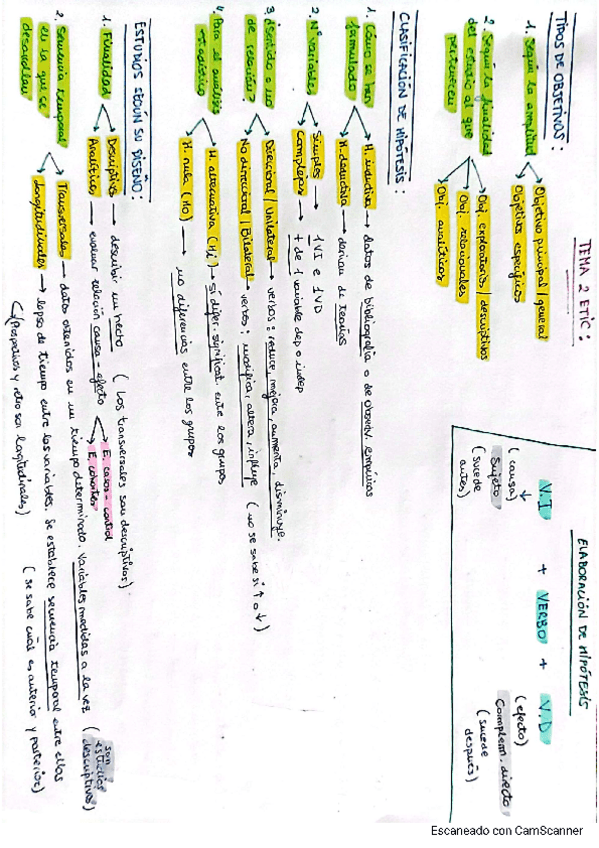 TEMA 2 ETIC:
TIPOS DE OBJETIVOS:
1. Según la amplitud
Objetivo principal / general
Objetivos específicos
2. Según la finalidad
del estudio al que
pertenecen
Obj. exploratorios / descriptivos
Obj. relacionales
Obj. analíticos
ELABORACIÓN DE HIPÓTESIS
V.I + VERBO + V.D
(causa)
(efecto)
Sujeto
Complem. directo
(sucede
antes)
(sucede
después)
CLASIFICACIÓN DE HIPÓTESIS:
1. Cómo se han
formulado
H. inductiva → datos de bibliografía o de observ. empíricas
H. deductiva → derivan de teorías
2. Nº variables
Simples → 1 VI e 1 VD
Complejas → + de 1 variable dep o indep
3. ¿Sentido o no
de relación?
Direccional / Unilateral → verbos: reduce, mejora, aumenta, disminuye.
No direccional / Bilateral → verbos: modifica, altera, influye (no se sabe si ↑ o ↓)
4. Para el análisis
estadístico
H. alternativa (Hi) → sí difer. significat. entre los grupos
H. nula (Ho) → no diferencias entre los grupos
ESTUDIOS SEGÚN SU DISEÑO:
1. Finalidad
Descriptivos → describir un hecho (Los transversales son descriptivos)
Analíticos → evaluar relación causa-efecto
E. casos-control
E. cohortes
2. Secuencia temporal
en la que se
desarrollan
Transversales → datos obtenidos en un tiempo determinado. Variables medidas a la vez (son estudios descriptivos)
Longitudinales → lapso de tiempo entre las variables. Se establece secuencia temporal entre ellas
(se sabe cuál es anterior y posterior)
(Prospectivos y retro son longitudinales)
Escaneado con CamScanner